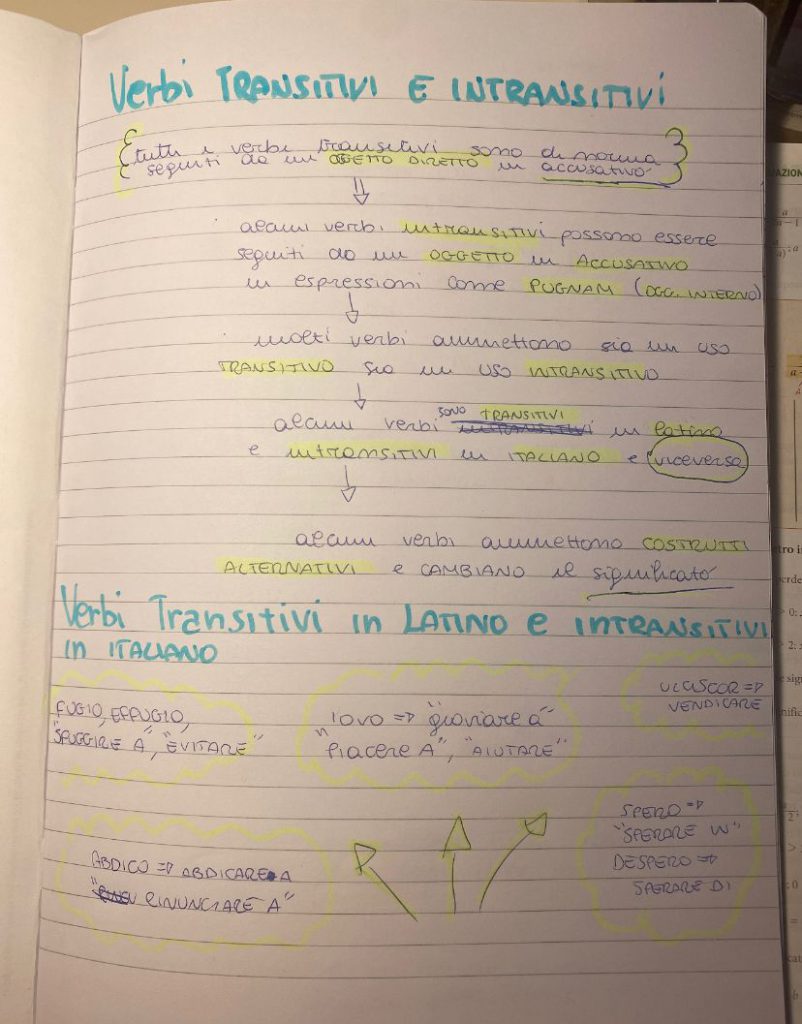 Verbi TRANSITIVI E INTRANSITIVI
tutti i verbi transitivi sono di norma
seguiti da un OGGETTO DIRETTO in accusativo
alcuni verbi intransitivi possono essere
seguiti da un OGGETTO in ACCUSATIVO
in espressioni come PUGNAM (OGG. INTERNO)
molti verbi ammettono sia un uso
TRANSITIVO sia un uso INTRANSITIVO
alcuni verbi SONO TRANSITIVI in latino
e intransitivi in ITALIANO e viceversa
alcuni verbi ammettono COSTRUTTI
ALTERNATIVI e CAMBIANO il significato
Verbi Transitivi in LATINO e INTRANSITIVI
in ITALIANO
FUGIO, EFFUGIO,
"SFUGGIRE A", "EVITARE"
IOVO => "gioviare a"
"PIACERE A", "AIUTARE"
ULCISCOR =>
VENDICARE
ABDICO => ABDICARE A
"RINUNCIARE A"
SPERO =>
"SPERARE IN"
DESPERO =>
SPERARE DI